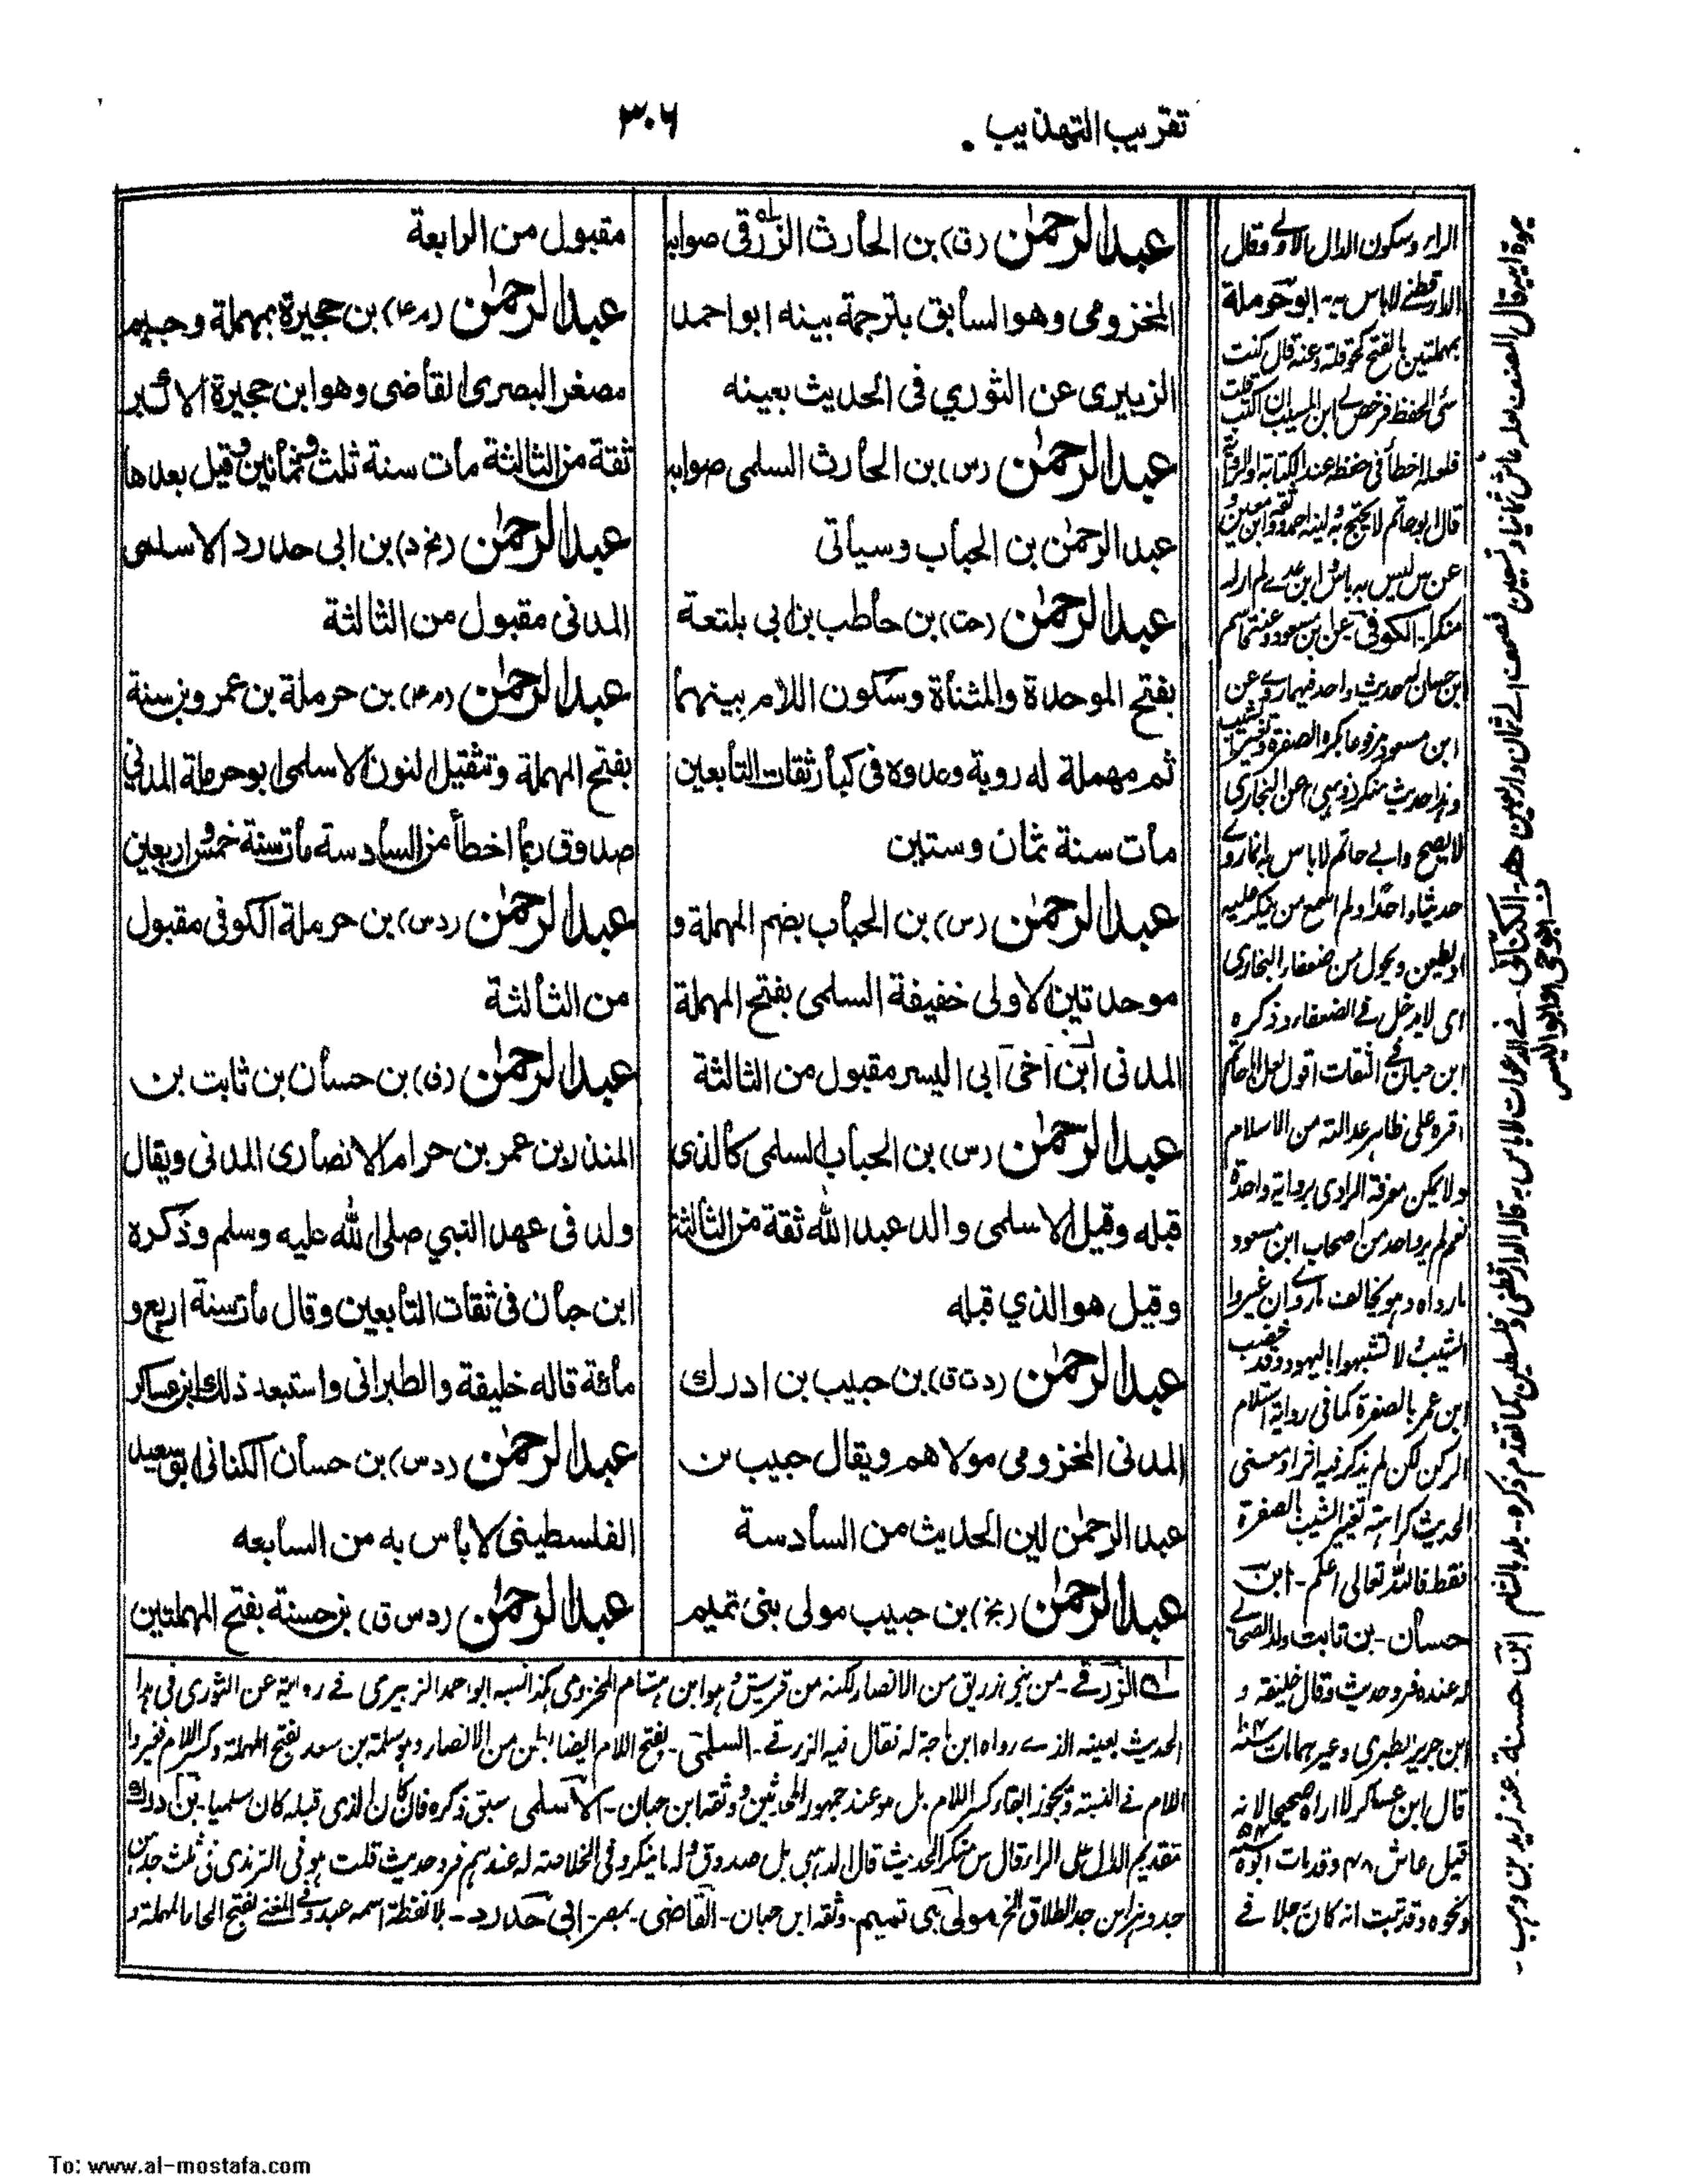 تقريب التهذيب
٣٠٦
عبد الرحمٰن (ق) بن الحارث الزرقى صوابه
المخزومى وهو السابق بترجمة بينه ابو احمد
الزبيرى عن الثوري فى الحديث بعينه
عبد الرحمٰن (س) بن الحارث السلمى صوابه
عبد الرحمٰن بن الحباب وسيأتى
عبد الرحمٰن (خت) بن حاطب بن ابى بلتعة
بفتح الموحدة والمثناة وسكون اللام بينهما
ثم مهملة له روية وعدوه فى كبار ثقات التابعين
مات سنة ثمان وستين
عبد الرحمٰن (س) بن الحباب بضم المهملة و
موحدتين الاولى خفيفة السلمى بفتح المهملة
المدنى ابن اخى ابى اليسر مقبول من الثالثة
عبد الرحمٰن (س) بن الحباب السلمى كالذى
قبله وقيل الاسلمى والد عبد الله ثقة من الثالثة
وقيل هو الذي قبله
عبد الرحمٰن (د ت ق) بن حبيب بن ادرك
المدنى المخزومى مولاهم ويقال حبيب بن
عبد الرحمٰن لين الحديث من السادسة
عبد الرحمٰن (بخ) بن حبيب مولى بنى تميم
مقبول من الرابعة
عبد الرحمٰن (م٤) بن حجيرة بمهملة وجيم
مصغر البصرى القاضى وهو ابن حجيرة الاكبر
ثقة من الثالثة مات سنة ثلث وثمانين وقيل بعدها
عبد الرحمٰن (بخ د) بن ابى حدرد الاسلمى
المدنى مقبول من الثالثة
عبد الرحمٰن (م٤) بن حرملة بن عمرو بن سنة
بفتح المهملة وتثقيل النون الاسلمى ابو حرملة المدنى
صدوق ربما اخطأ من السادسة مات سنة خمس واربعين
عبد الرحمٰن (د س) بن حرملة الكوفى مقبول
من الثالثة
عبد الرحمٰن (ق) بن حسان بن ثابت بن
المنذر بن عمر بن حرام الانصارى المدنى ويقال
ولد فى عهد النبي صلى الله عليه وسلم وذكره
ابن حبان فى ثقات التابعين وقال مات سنة اربع و
مائة قاله خليفة والطبرانى واستبعد ذلك ابن عساكر
عبد الرحمٰن (د س) بن حسان الكنانى ابو سعيد
الفلسطينى لا بأس به من السابعه
عبد الرحمٰن (د س ق) بن حسنة بفتح المهملتين
الراء وسكون الدال الاولى وقال
الدارقطنے لاباس به ابو حرملة
بمهملتين بالفتح وعنه قال كنت
سئ الحفظ فرخص لى ابن المسيب ان اكتب
قال ابو حاتم لا يحتج به
عن س ليس به باس ابن عدے لم ار له
منكرا الكوفى عن ابن مسعود وعنه قاسم
ابن حسان له حديث واحد فيما روے عن
ابن مسعود مرفوعا كره الصفرة وتغيير الشيب
وهذا حديث منكر ذهبى عن البخارى
لا يصح وابے حاتم لا باس به انما روے
حديثا واحدا ولم اسمع من ينكر عليه
ويحول من ضعفاء البخارى
اى لا يدخل فے الضعفاء وذكره
ابن حبان فے الثقات اقول
على ظاهر عدالته من الاسلام
ولا يمكن معرفة الراوى برواية واحدة
نعم لم يرو احد من اصحاب ابن مسعود
ما رواه وهو يخالف ما روے ان غيروا
الشيب لا تشبهوا باليهود وقد خضب
ابن عمر بالصفرة كما فى رواية استلام
الركن لكن لم يذكر فيه
الحديث كراهته تغيير الشيب بالصفرة
فقط فالله تعالى اعلم - ابن
حسان - بن ثابت ولد الصحابے
له عنده فرد حديث وقال خليفة و
ابن جرير الطبرى وغيرهما مات سنة
قال ابن عساكر لا اراه صحيحا لانه
قيل عاش ٤٨ وقد مات ابوه
ونحوه وقد ثبت انه كان رجلا فے
الزرقے - من بنے زريق من الانصار لكنه من قريش وهو ابن هشام المخزومى كذا نسبه ابو احمد الزبيرى فے رواية عن الثورى فى هذا
الحديث بعينه الذے رواه ابن ماجة له فقال فيه الزرقے - السلمى - بفتح اللام ايضا بطن من الانصار وهو سلمة بن سعد بفتح المهملة وكسر اللام فغيروا
اللام فے النسبة ويجوز ابقاء كسر اللام بل هو عند جمهور المحدثين وثقه ابن حبان - الاسلمى سبق ذكره فان كان الذى قبله كان سلميا - بن ادرك
بتقديم الدال على الراء قال س منكر الحديث قال الذهبى بل صدوق وله ما ينكر وفى الخلاصة له عندهم فرد حديث قلت هو فى الترمذى فى ثلث جدهن
جد وهزلهن جد الطلاق الخ مولى بنى تميم - وثقه ابن حبان - القاضى - بمصر - ابى حدرد - بلا نقطة اسمه عبد وفے المغنے بفتح الحاء المهملة و
قال المصنف لعله عاش ثمانيا وتسعين فصحف الے ثمان واربعين - الكنانى - لاباس به قاله الدارقطنى وفلسطين كما تقدم ذكره - بلد بالشام ابن حسنة - عنه زيد بن وهب -